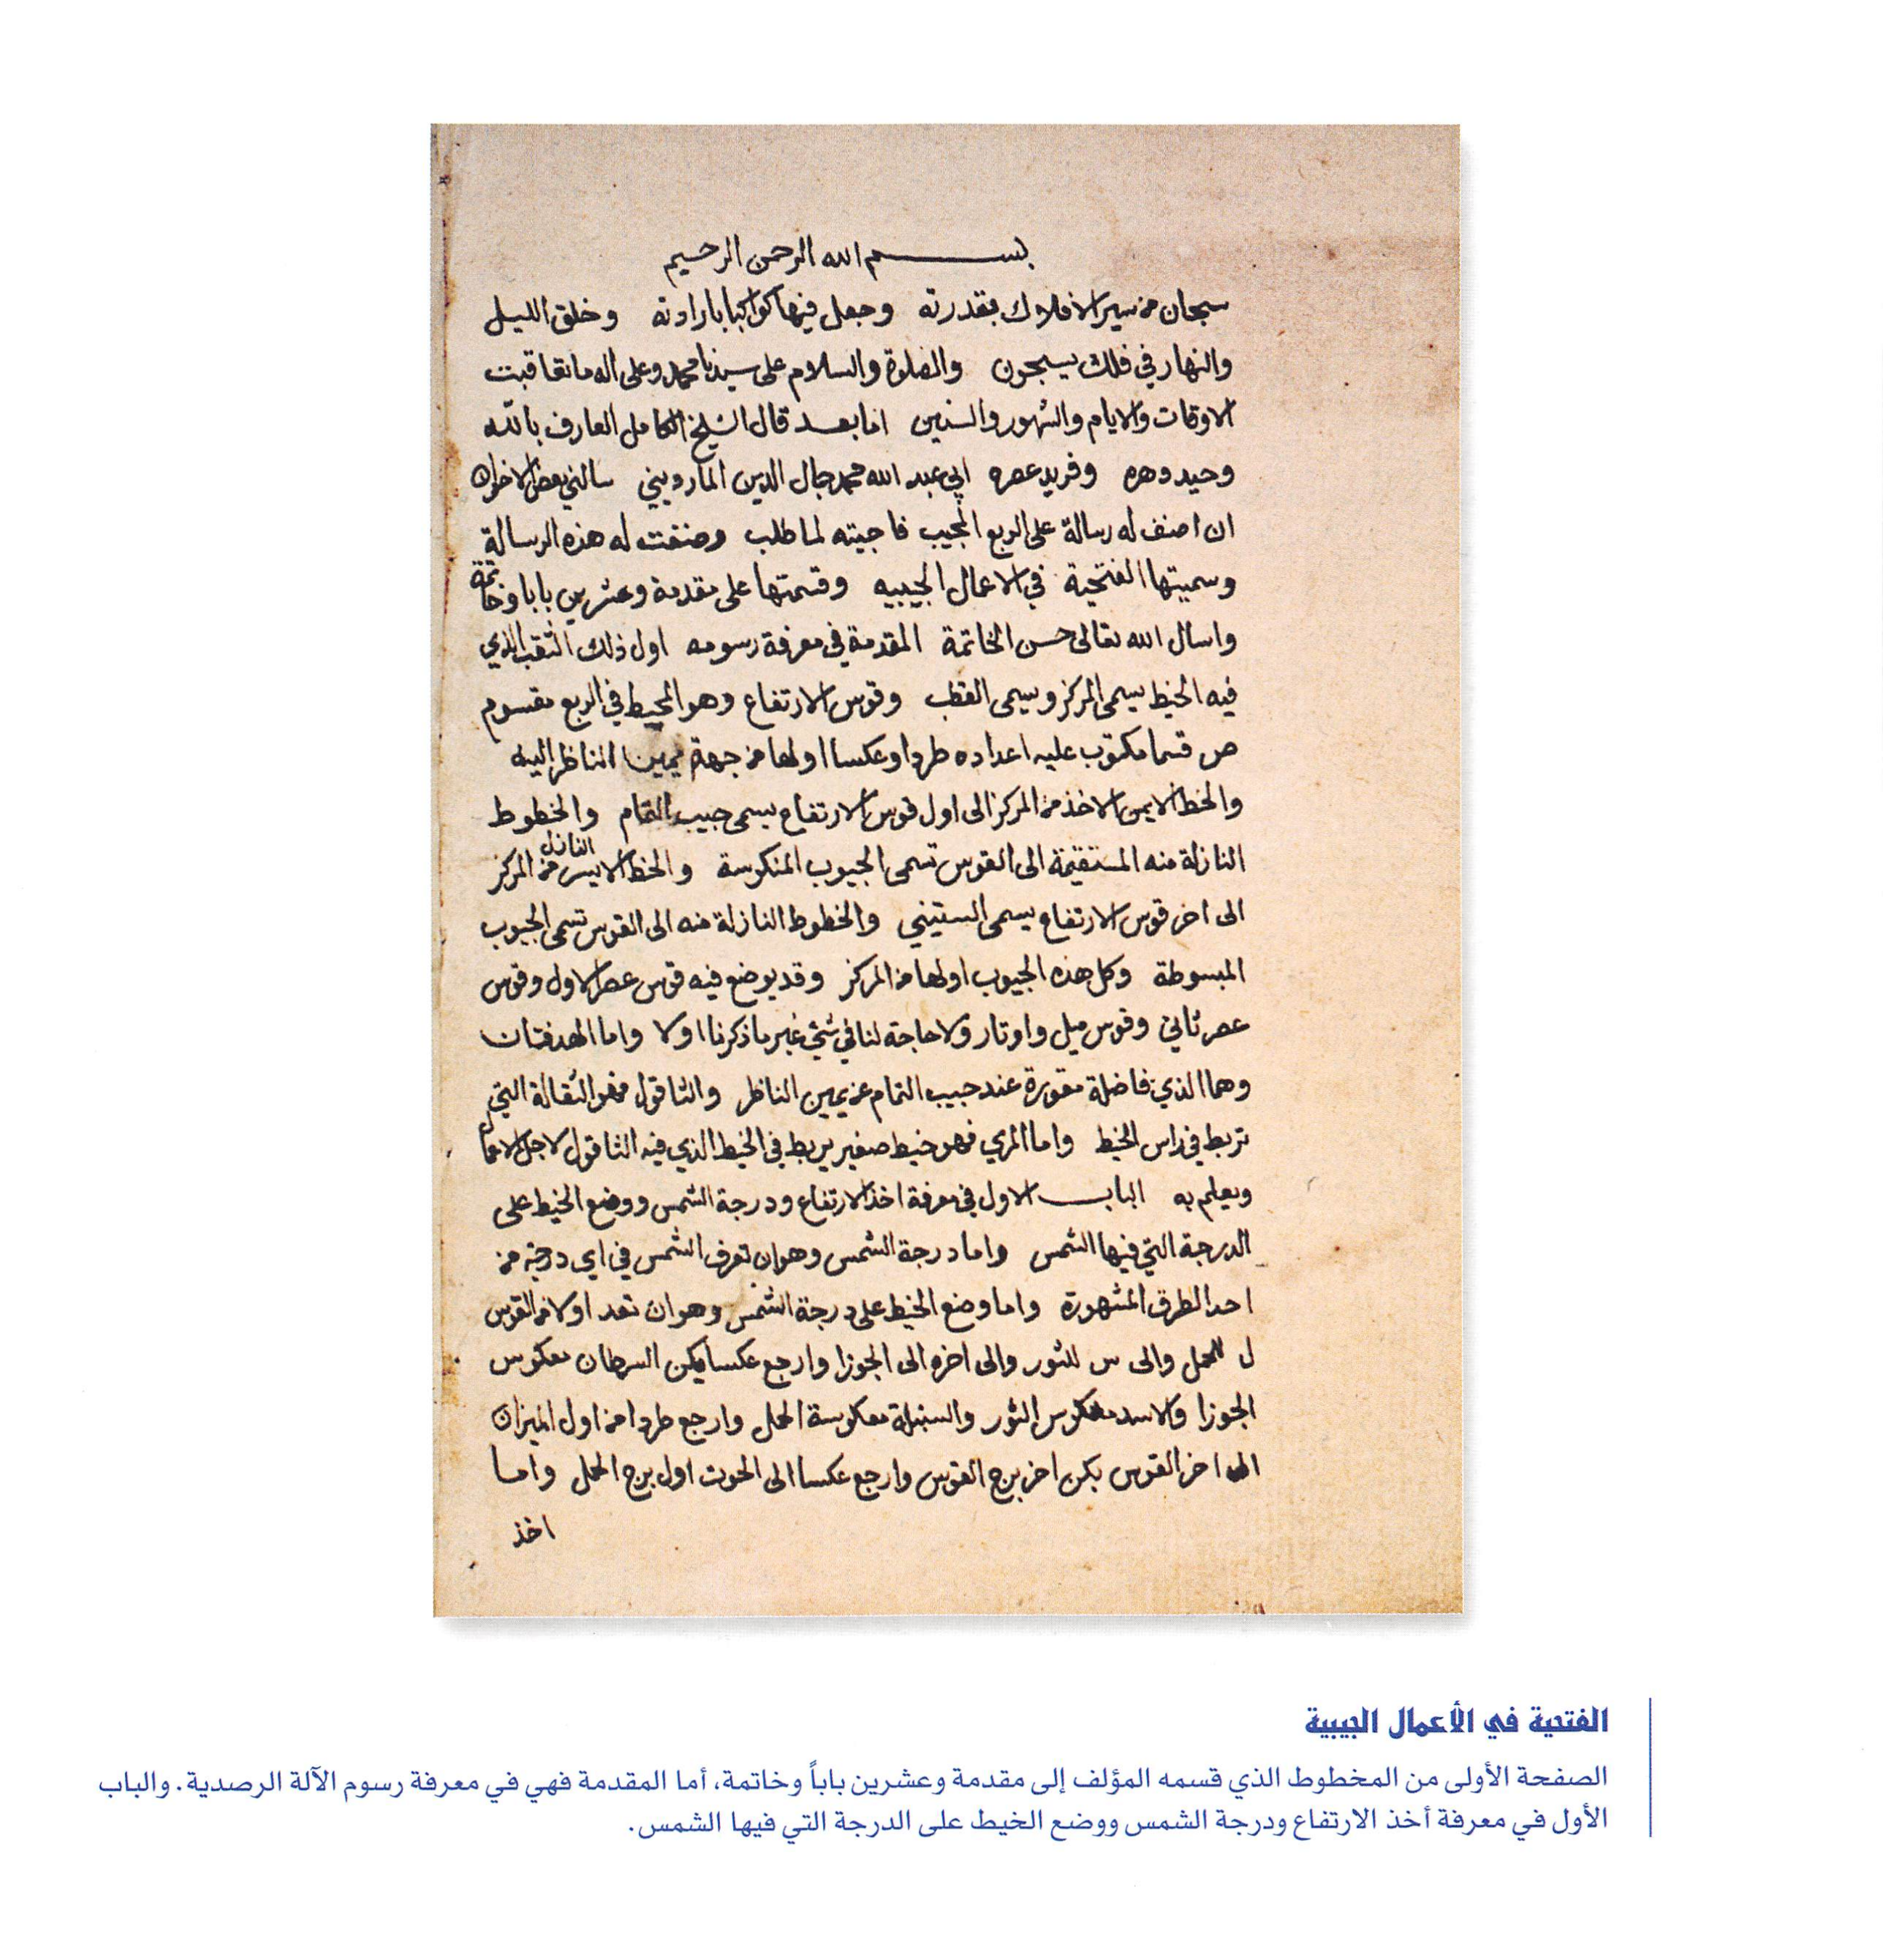 بســـــم الله الرحمن الرحيم
سبحان من سير الافلاك بقدرته وجعل فيها كواكبا بارادته وخلق الليل
والنهار في فلك يسبحون والصلوة والسلام على سيدنا محمد وعلى اله ما تعاقبت
الاوقات والايام والشهور والسنين اما بعد قال الشيخ الكامل العارف بالله
وحيد دهره وفريد عصره ابي عبد الله محمد جمال الدين المارديني سالني بعض الاخوان
ان اصنف له رسالة على الربع المجيب فاجبته لما طلب وصنفت له هذه الرسالة
وسميتها الفتحية في الاعمال الجيبيه وقسمتها على مقدمة وعشرين بابا وخاتمة
واسال الله تعالى حسن الخاتمة المقدمة في معرفة رسومه اول ذلك الثقب الذي
فيه الخيط يسمى المركز ويسمى القطب وقوس الارتفاع وهو المحيط في الربع مقسوم
ص قسما مكتوب عليه اعداده طردا وعكسا اولها من جهة يمين الناظر اليه
والخط الايمن الاخذ من المركز الى اول قوس الارتفاع يسمى جيب التمام والخطوط
النازلة منه المستقيمة الى القوس تسمى الجيوب المنكوسة والخط الايسر النازل من المركز
الى اخر قوس الارتفاع يسمى الستيني والخطوط النازلة منه الى القوس تسمى الجيوب
المبسوطة وكل هذه الجيوب اولها من المركز وقد يوضع فيه قوس عصر الاول وقوس
عصر ثاني وقوس ميل واوتار ولا حاجة لنا في شئ غير ما ذكرنا اولا واما الهدفتان
وهما الذي فاضلة مقورة عند جيب التمام عن يمين الناظر والشاقول فهو الثقالة التي
تربط في راس الخيط واما المري فهو خيط صغير يربط في الخيط الذي فيه الشاقول لاجل الاعمال
ويعلم به البـاب الاول في معرفة اخذ الارتفاع ودرجة الشمس ووضع الخيط على
الدرجة التي فيها الشمس واما درجة الشمس وهو ان تعرف الشمس في اي درجة من
احد الطرق المشهورة واما وضع الخيط على درجة الشمس وهو ان تعد اولا من القوس
ل للحمل والى س للثور والى اخره الى الجوزا وارجع عكسا يكن السرطان معكوس
الجوزا والاسد معكوس الثور والسنبلة معكوسة الحمل وارجع طردا من اول الميزان
الى اخر القوس يكن اخر برج القوس وارجع عكسا الى الحوت اول برج الحمل واما
اخذ
الفتحية في الأعمال الجيبية
الصفحة الأولى من المخطوط الذي قسمه المؤلف إلى مقدمة وعشرين باباً وخاتمة، أما المقدمة فهي في معرفة رسوم الآلة الرصدية. والباب
الأول في معرفة أخذ الارتفاع ودرجة الشمس ووضع الخيط على الدرجة التي فيها الشمس.